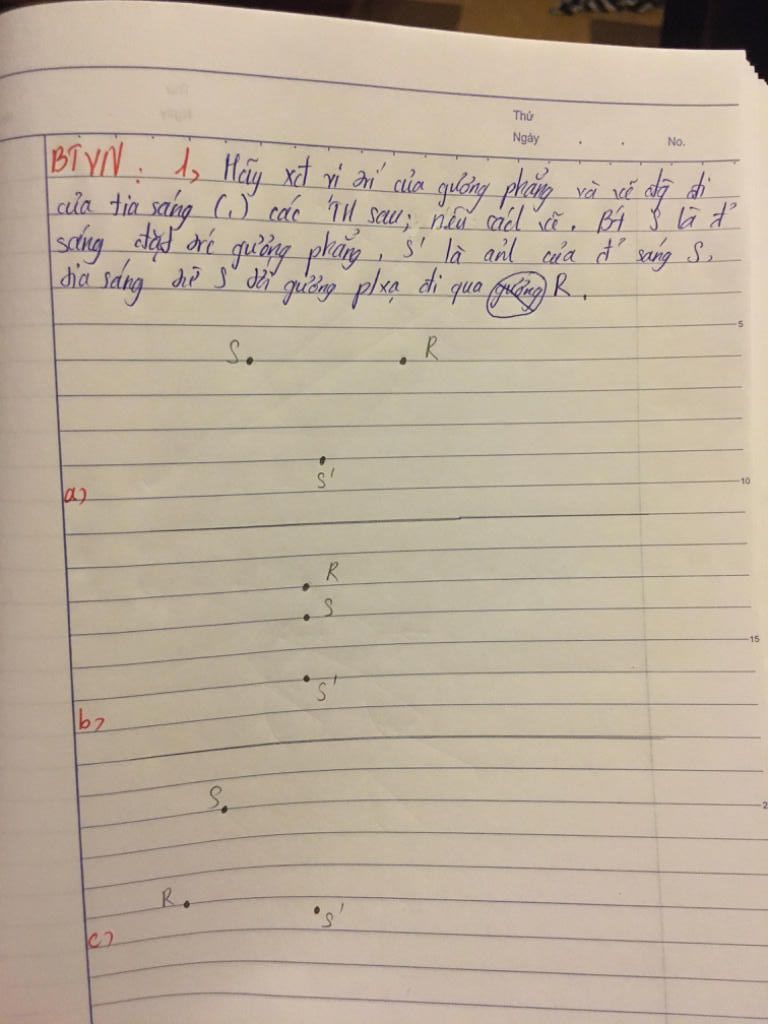 Thứ
Ngày . . No.
BTVN: 1, Hãy xđ vị trí của gương phẳng và vẽ đg đi
của tia sáng (.) các TH sau; nêu cách vẽ. Bt S là đ'
sáng đặt trc gương phẳng, S' là ảnh của đ' sáng S,
tia sáng từ S tới gương phxạ đi qua R.
5
S R
S'
a,
10
R
S
S'
15
b,
S
2
R S'
c,